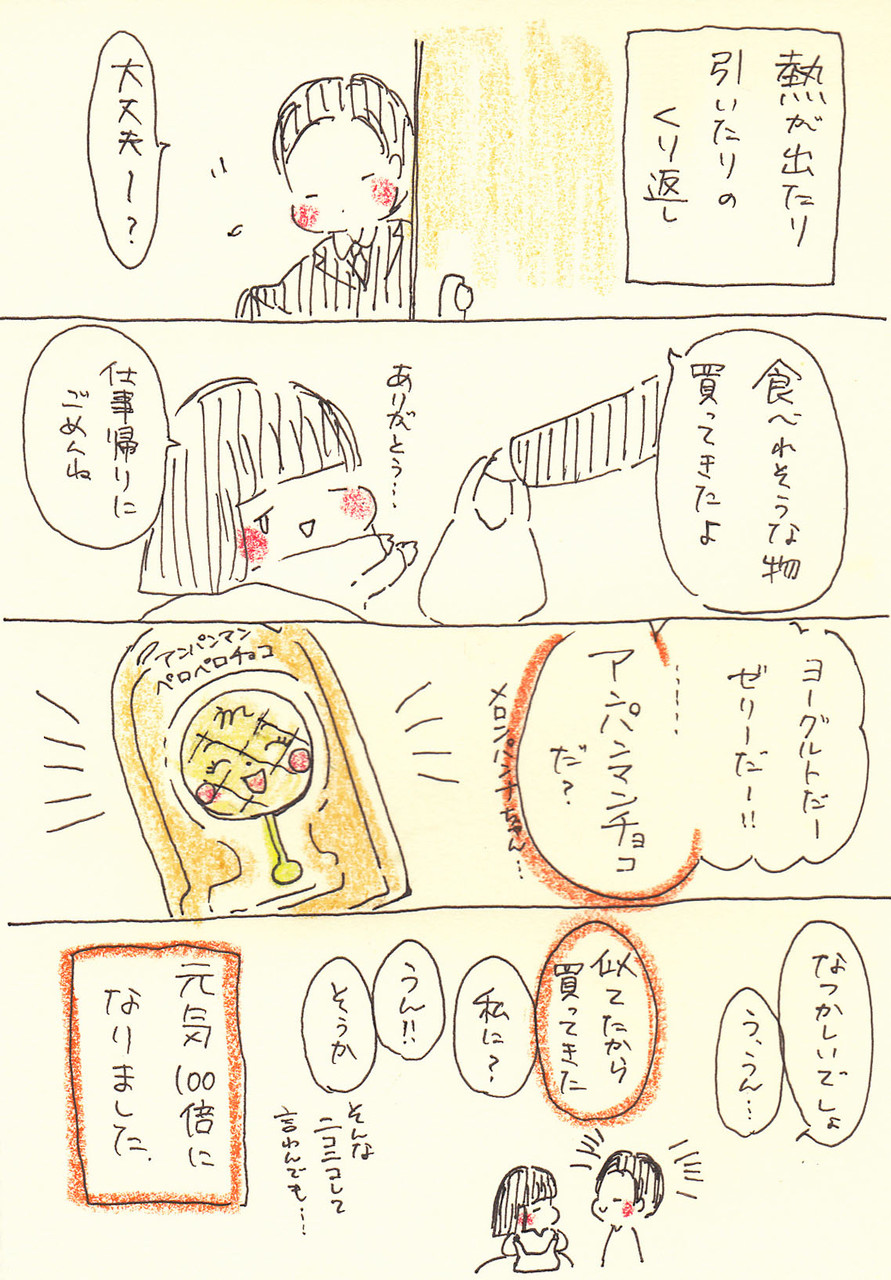 熱が出たり
引いたりの
くり返し
大丈夫ー?
食べれそうな物
買ってきたよ
ありがとう…
仕事帰りに
ごめんね
ヨーグルトだー
ゼリーだー!!
……
アンパンマンチョコ
だ?
メロンパンナちゃん…
アンパンマン
ペロペロチョコ
m
なつかしいでしょ
う、うん…
似てたから
買ってきた
私に?
うん!!
そうか
そんな
ニコニコして
言わんでも…
元気100倍に
なりました.